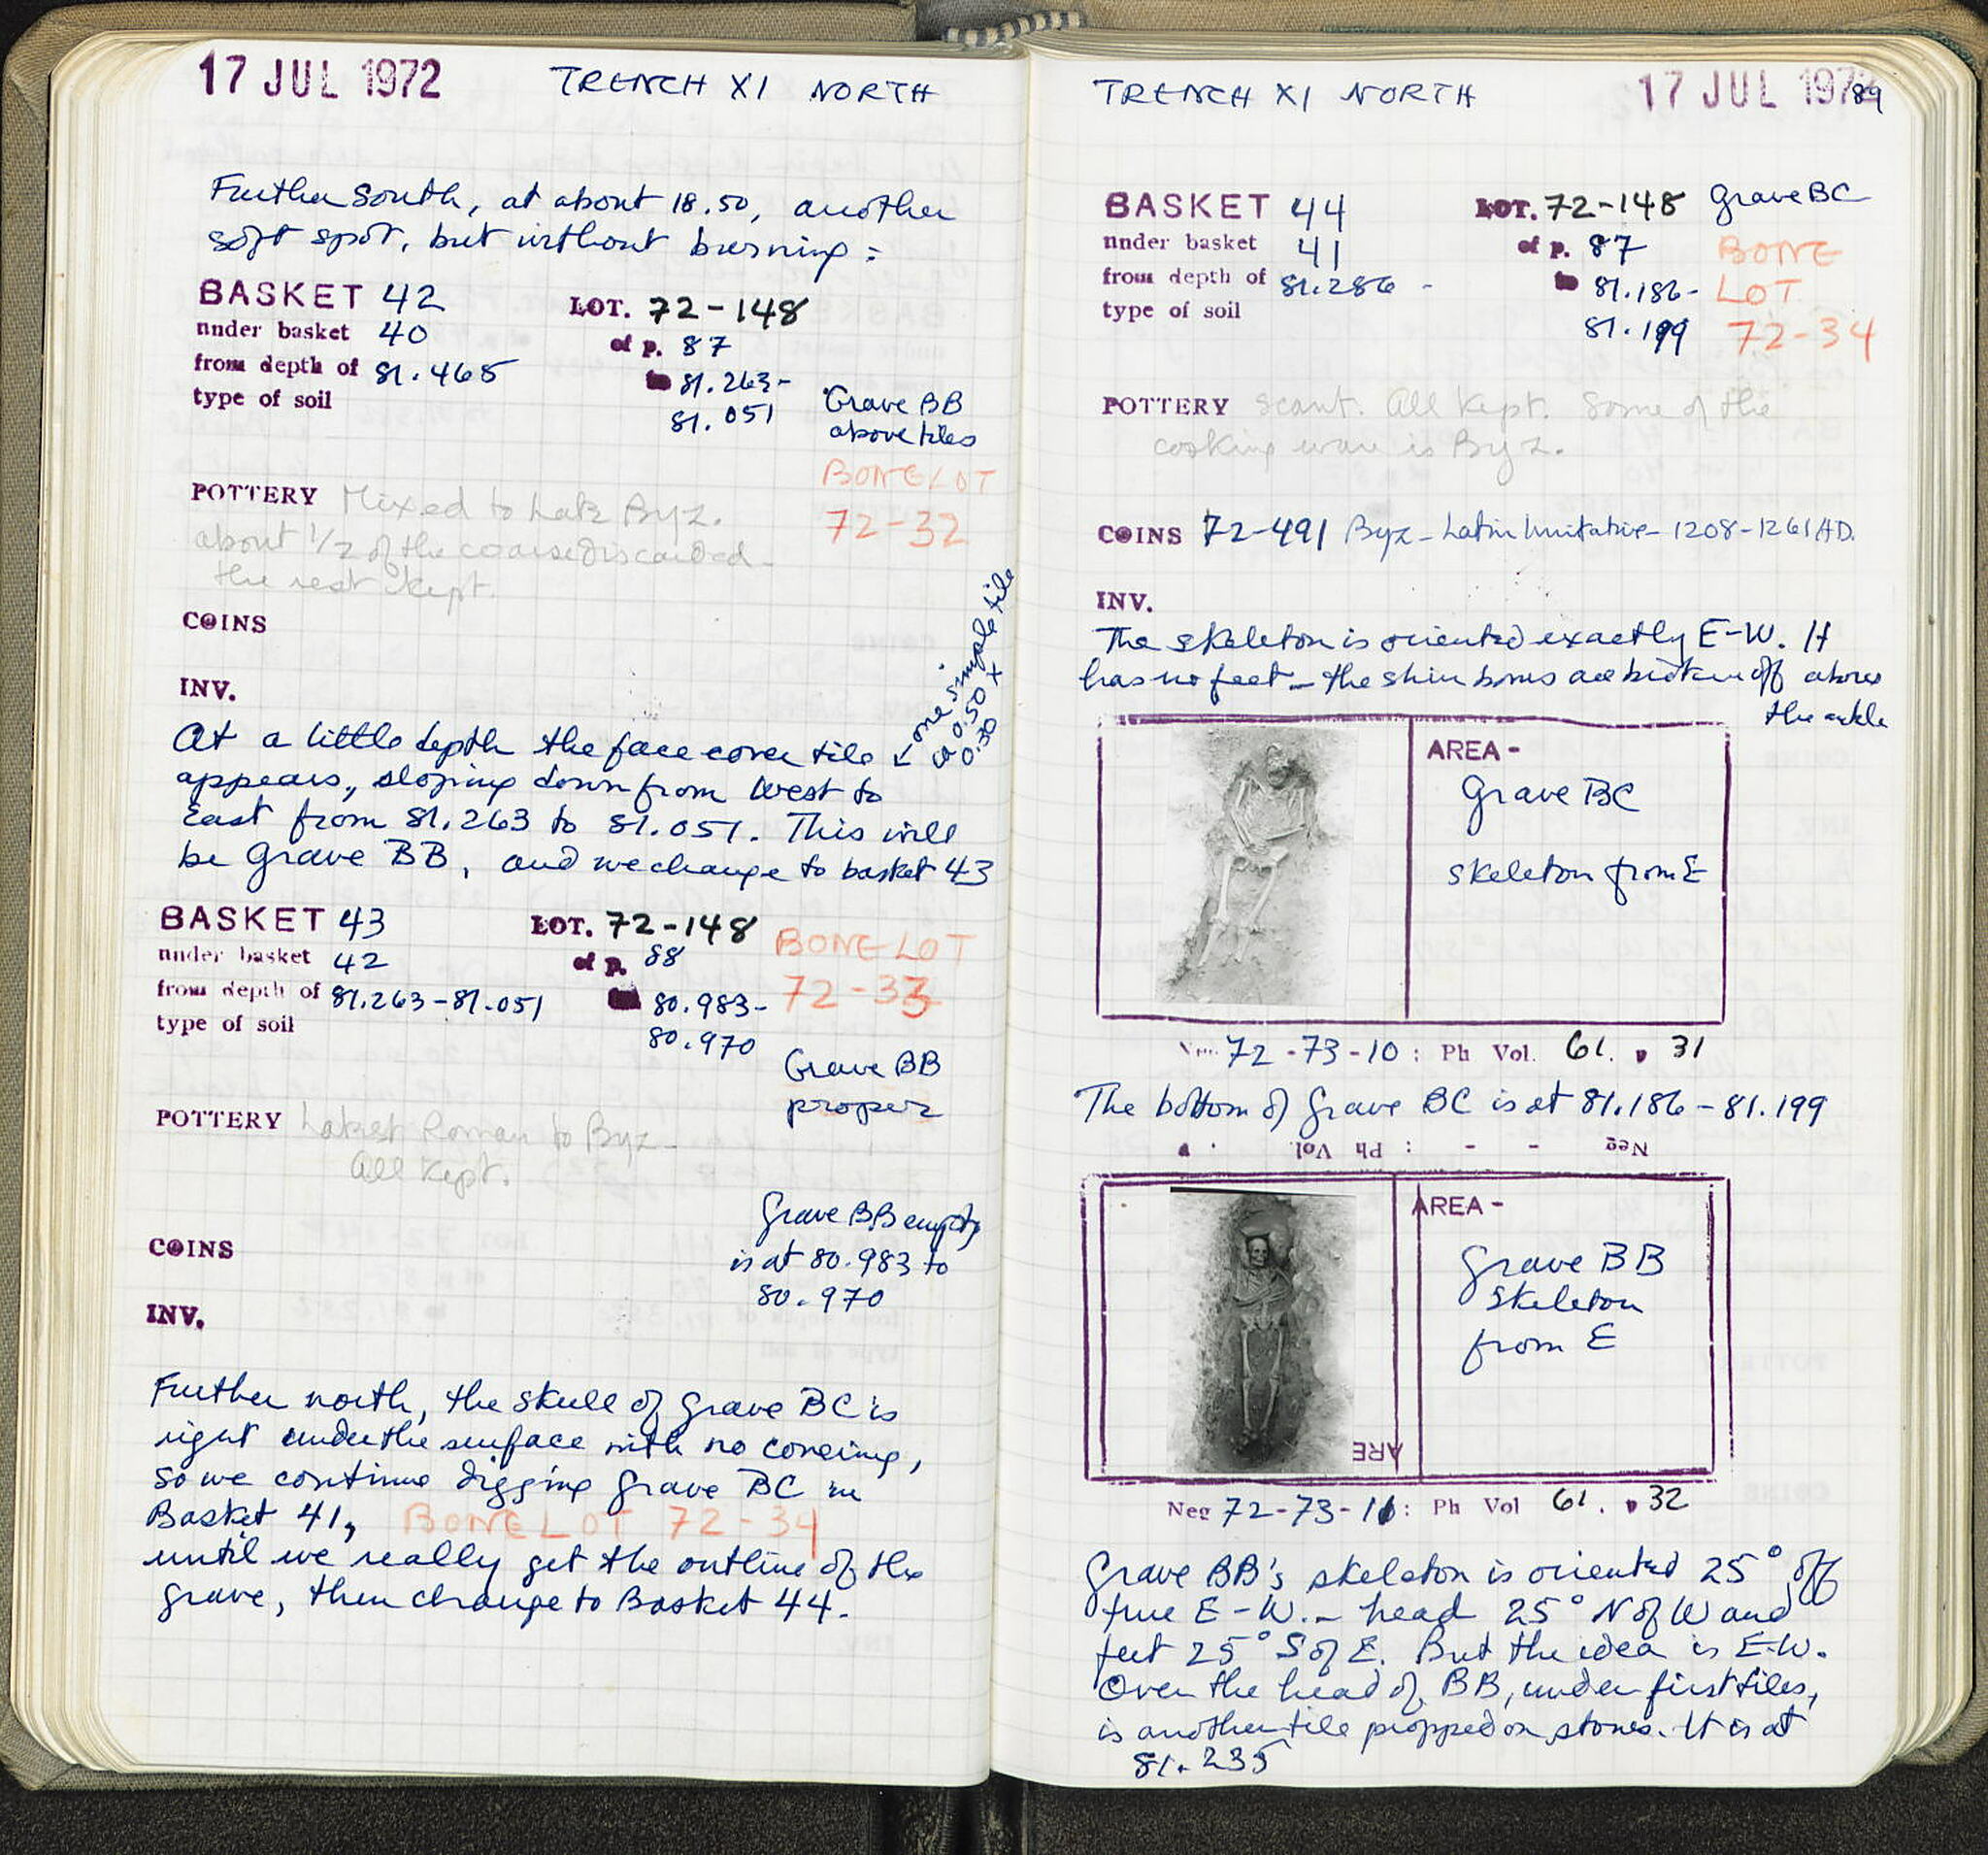 17 JUL 1972 TRENCH XI NORTH
Further South, at about 18.50, another
soft spot, but without burning:
BASKET 42 LOT. 72-148
under basket 40 of p. 87
from depth of 81.465 to 81.263-
type of soil 81.051
Grave BB
above tiles
BONE LOT
72-32
POTTERY Mixed to Late Byz.
about 1/2 of the coarse discarded-
the rest kept.
COINS
INV.
At a little depth the face cover tile ← one simple tile
0.50 x
0.30
appears, sloping down from West to
East from 81.263 to 81.051. This will
be grave BB, and we change to basket 43
BASKET 43 LOT. 72-148 BONE LOT
under basket 42 of p. 88 72-33
from depth of 81.263-81.051 80.983-
type of soil 80.970
Grave BB
proper
POTTERY Latest Roman to Byz-
All kept.
Grave BB empty
COINS is at 80.983 to
80.970
INV.
Further north, the skull of grave BC is
right under the surface with no covering,
so we continue digging grave BC in
Basket 41, BONE LOT 72-34
until we really get the outline of the
grave, then change to Basket 44.
TRENCH XI NORTH 17 JUL 1972 89
BASKET 44 LOT. 72-148 Grave BC
under basket 41 of p. 87 BONE
from depth of 81.286 - 81.186- LOT
type of soil 81.199 72-34
POTTERY Scant. All kept. Some of the
cooking ware is Byz.
COINS 72-491 Byz-Latin Imitative-1208-1261AD.
INV.
The skeleton is oriented exactly E-W. It
has no feet - the shin bones are broken off above
the ankle
AREA -
Grave BC
skeleton from E
Neg 72-73-10: Ph Vol. 61. p 31
The bottom of Grave BC is at 81.186-81.199
Neg - - : Ph Vol . p
AREA -
Grave BB
Skeleton
from E
ARE
Neg 72-73-11: Ph Vol 61. p 32
Grave BB's skeleton is oriented 25° off
true E-W. - head 25° N of W and
feet 25° S of E. But the idea is E-W.
Over the head of BB, under first tiles,
is another tile propped on stones. It is at
81.235